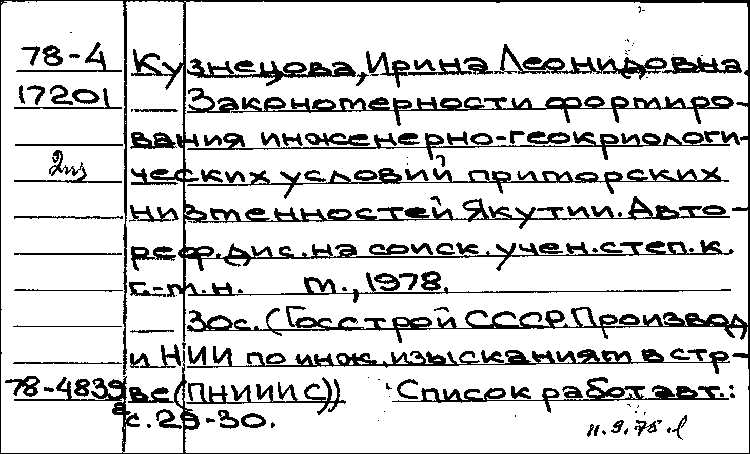 78-4 Кузнецова, Ирина Леонидовна.
17201 Закономерности формиро-
вания инженерно-геокриологи-
2из ческих условий приморских
низменностей Якутии. Авто-
реф. дис. на соиск. учен. степ. к.
г.-м.н. М., 1978.
30с. (Госстрой СССР. Производ
и НИИ по инж. изысканиям в стр-
78-4839 ве (ПНИИИС)) Список работ авт.:
с. 29-30.